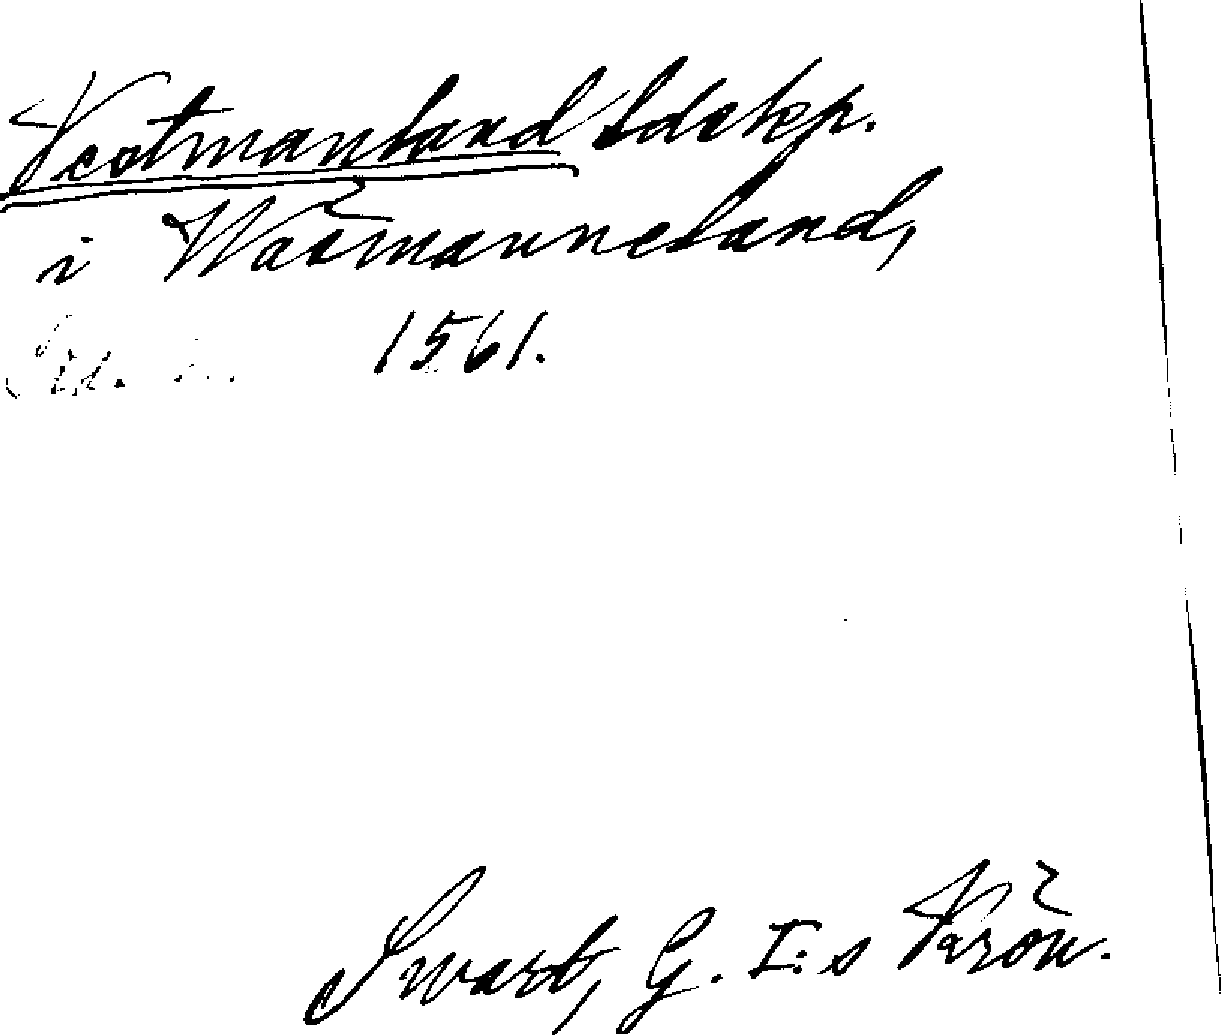 Vestmanland ldskp.
i Wäsmanneland,
1561.
Swart, G. I:s Krön.